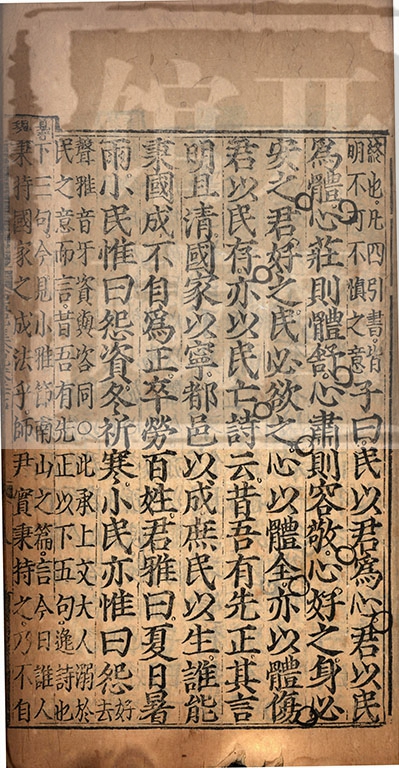 終也凡四引書皆
明不可不慎之意
子曰民以君爲心君以民
爲體心莊則體舒心肅則容敬心好之身必
安之君好之民必欲之心以體全亦以體傷
君以民存亦以民亡詩云昔吾有先正其言
明且清國家以寧都邑以成庶民以生誰能
秉國成不自爲正卒勞百姓君雅曰夏日暑
雨小民惟曰怨資冬祈寒小民亦惟曰怨
好
去
聲雅音牙資與咨同○此承上文大人溺於
民之意而言昔吾有先正以下五句逸詩也
下三句今見小雅節南山之篇言今日誰人
秉持國家之成法乎師尹實秉持之乃不自